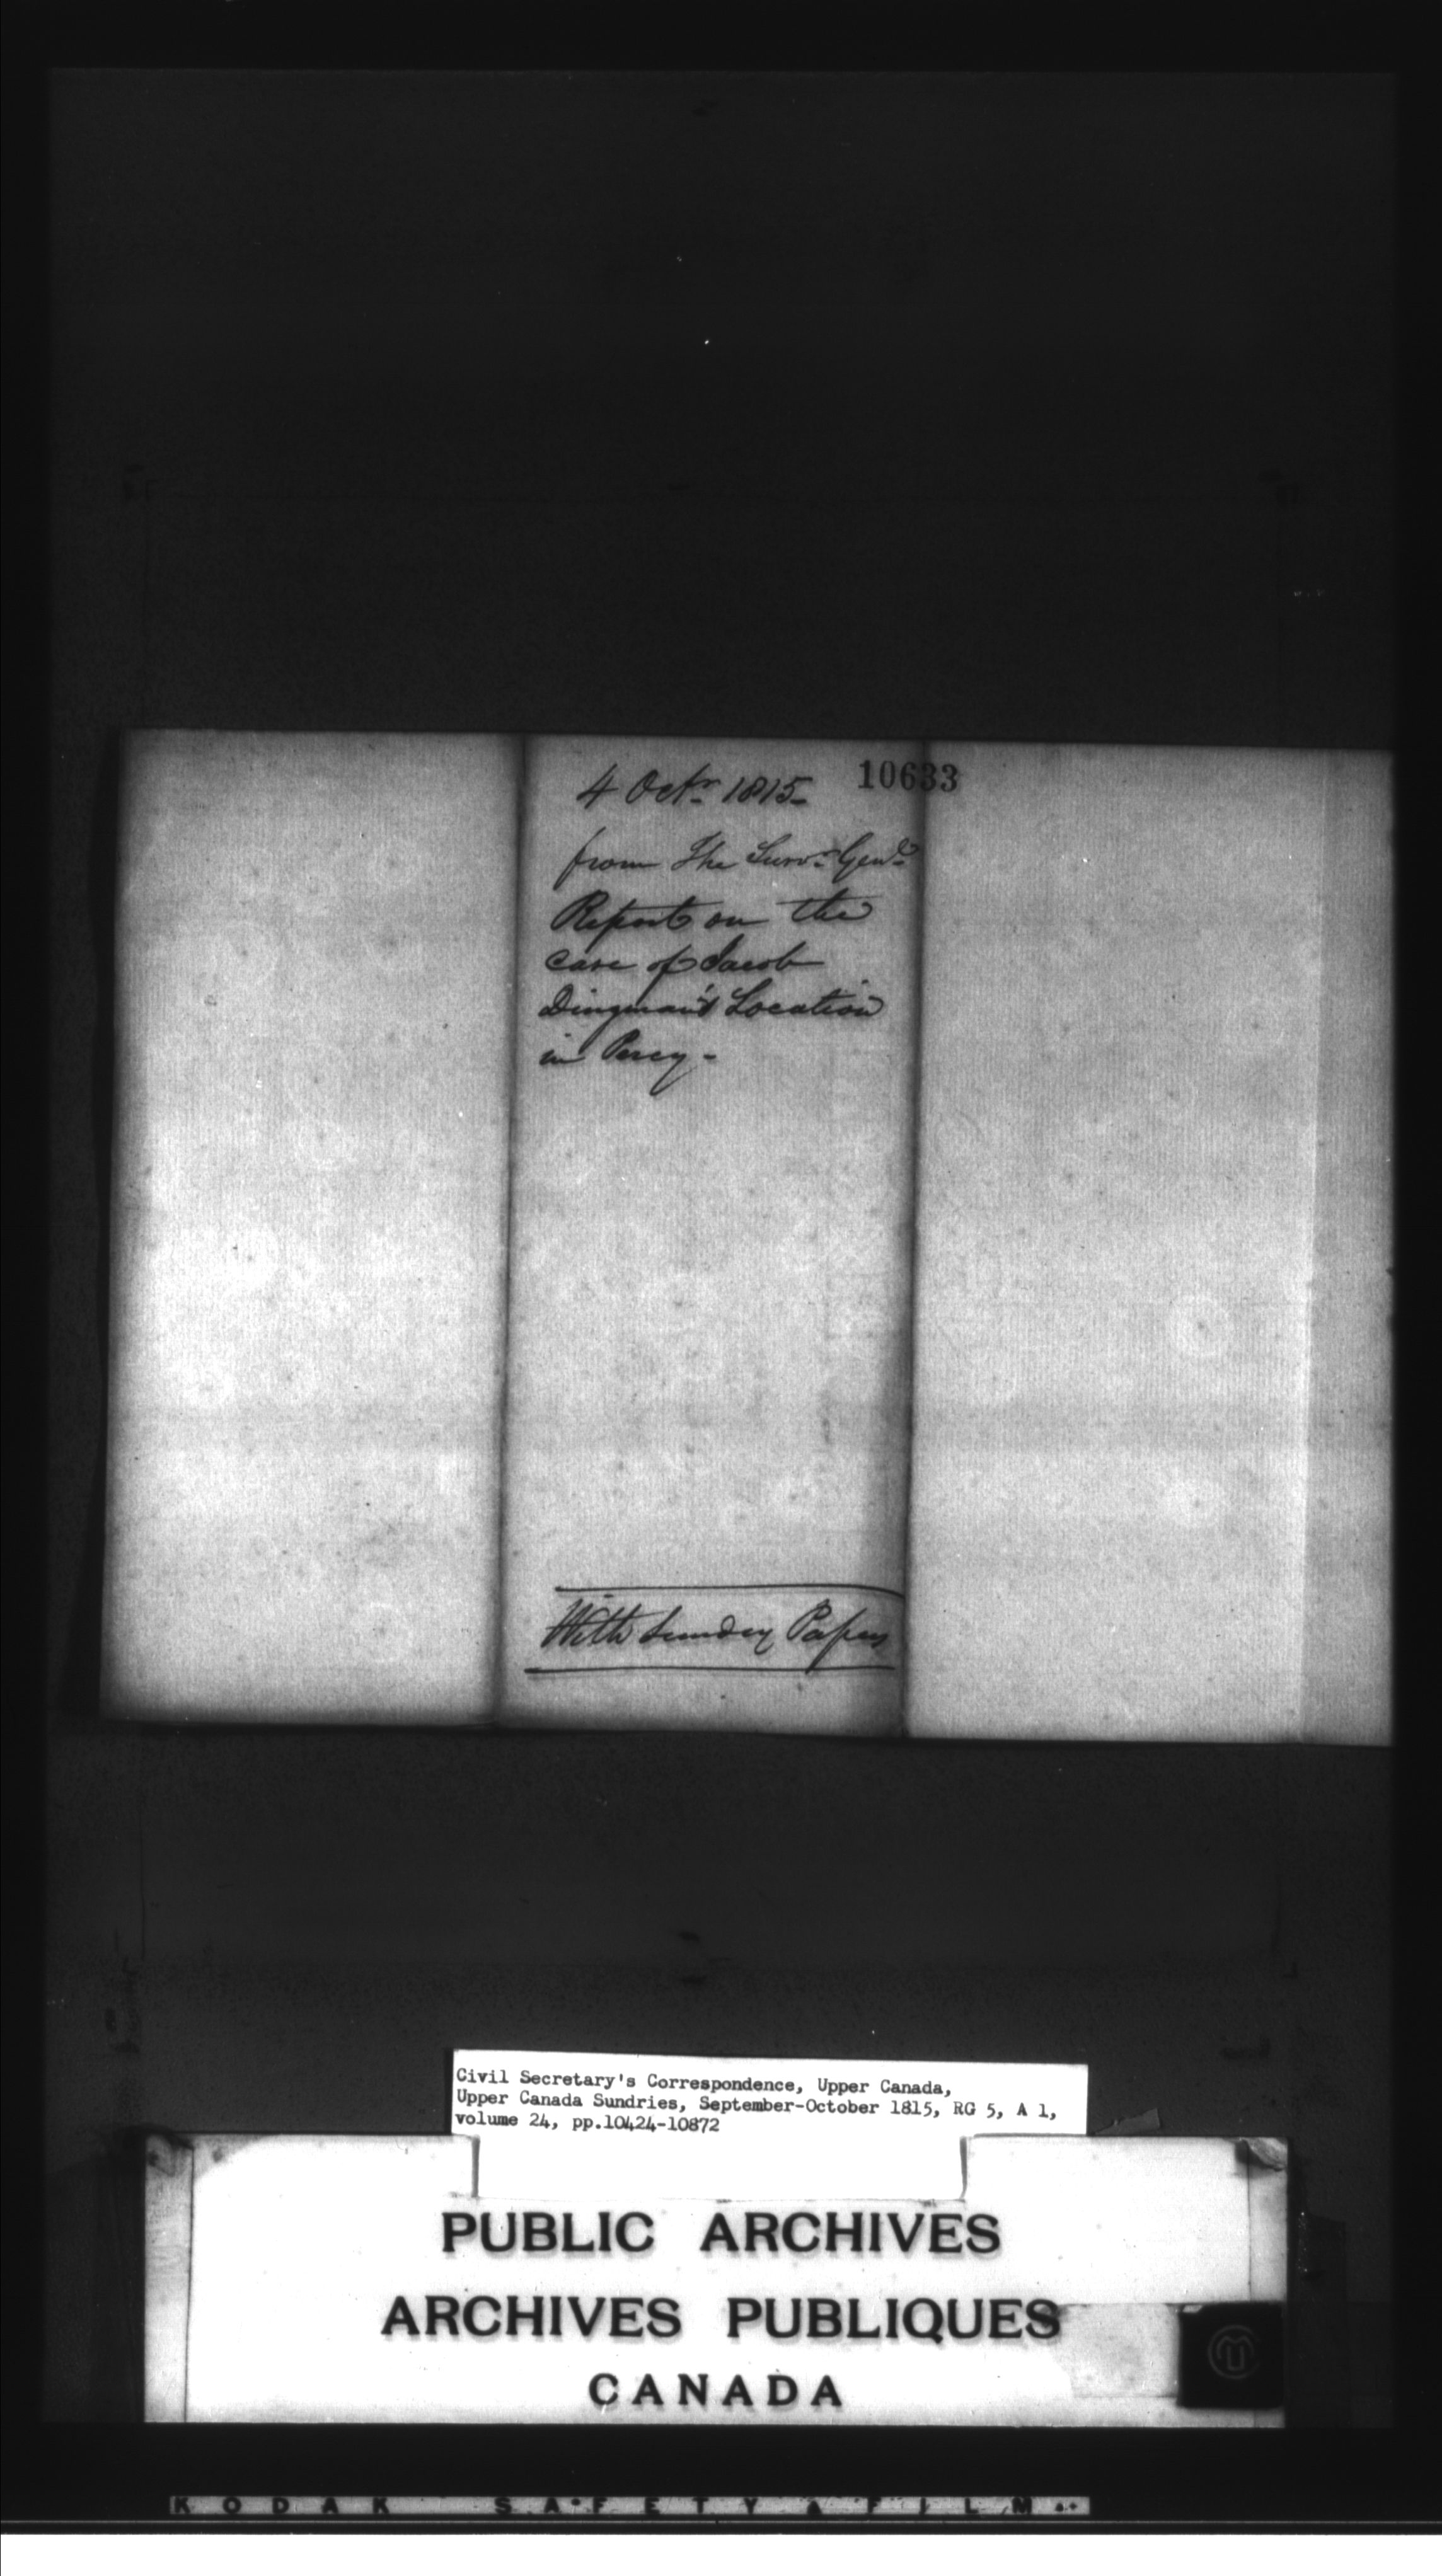 10633
4 Octr. 1815.
from The Survr. Genl.
Report on the
case of Jacob
Dingman's Location
in Percy -
With Sundry Papers
Civil Secretary's Correspondence, Upper Canada,
Upper Canada Sundries, September-October 1815, RG 5, A 1,
volume 24, pp.10424-10872
PUBLIC ARCHIVES
ARCHIVES PUBLIQUES
CANADA
KODAK SAFETY FILM